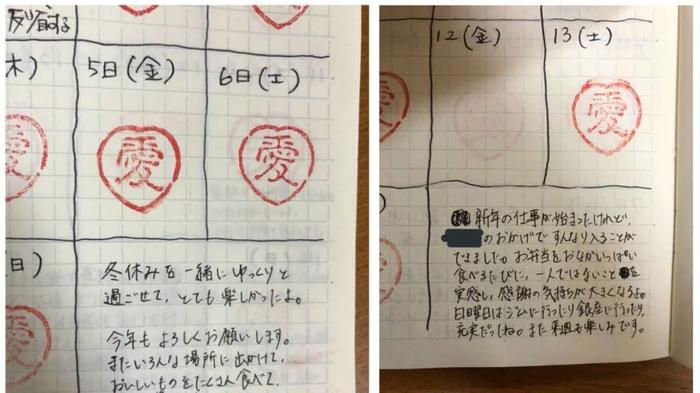 反省する
木)
5日(金)
6日(土)
愛
愛
日)
冬休みを一緒にゆっくりと
過ごせて、とても楽しかったよ。
今年もよろしくお願いします。
またいろんな場所に出かけて、
おいしいものをたくさん食べて、
12(金)
13(土)
愛
愛
新年の仕事が始まったけれど、
のおかげですんなり入ることが
できました。お弁当をおなかいっぱい
食べるたびに、一人ではないことを
実感し、感謝の気持ちが大きくなるよ。
日曜日はジムに行ったり銀座に行ったり、
充実だったね。また来週も楽しみです。